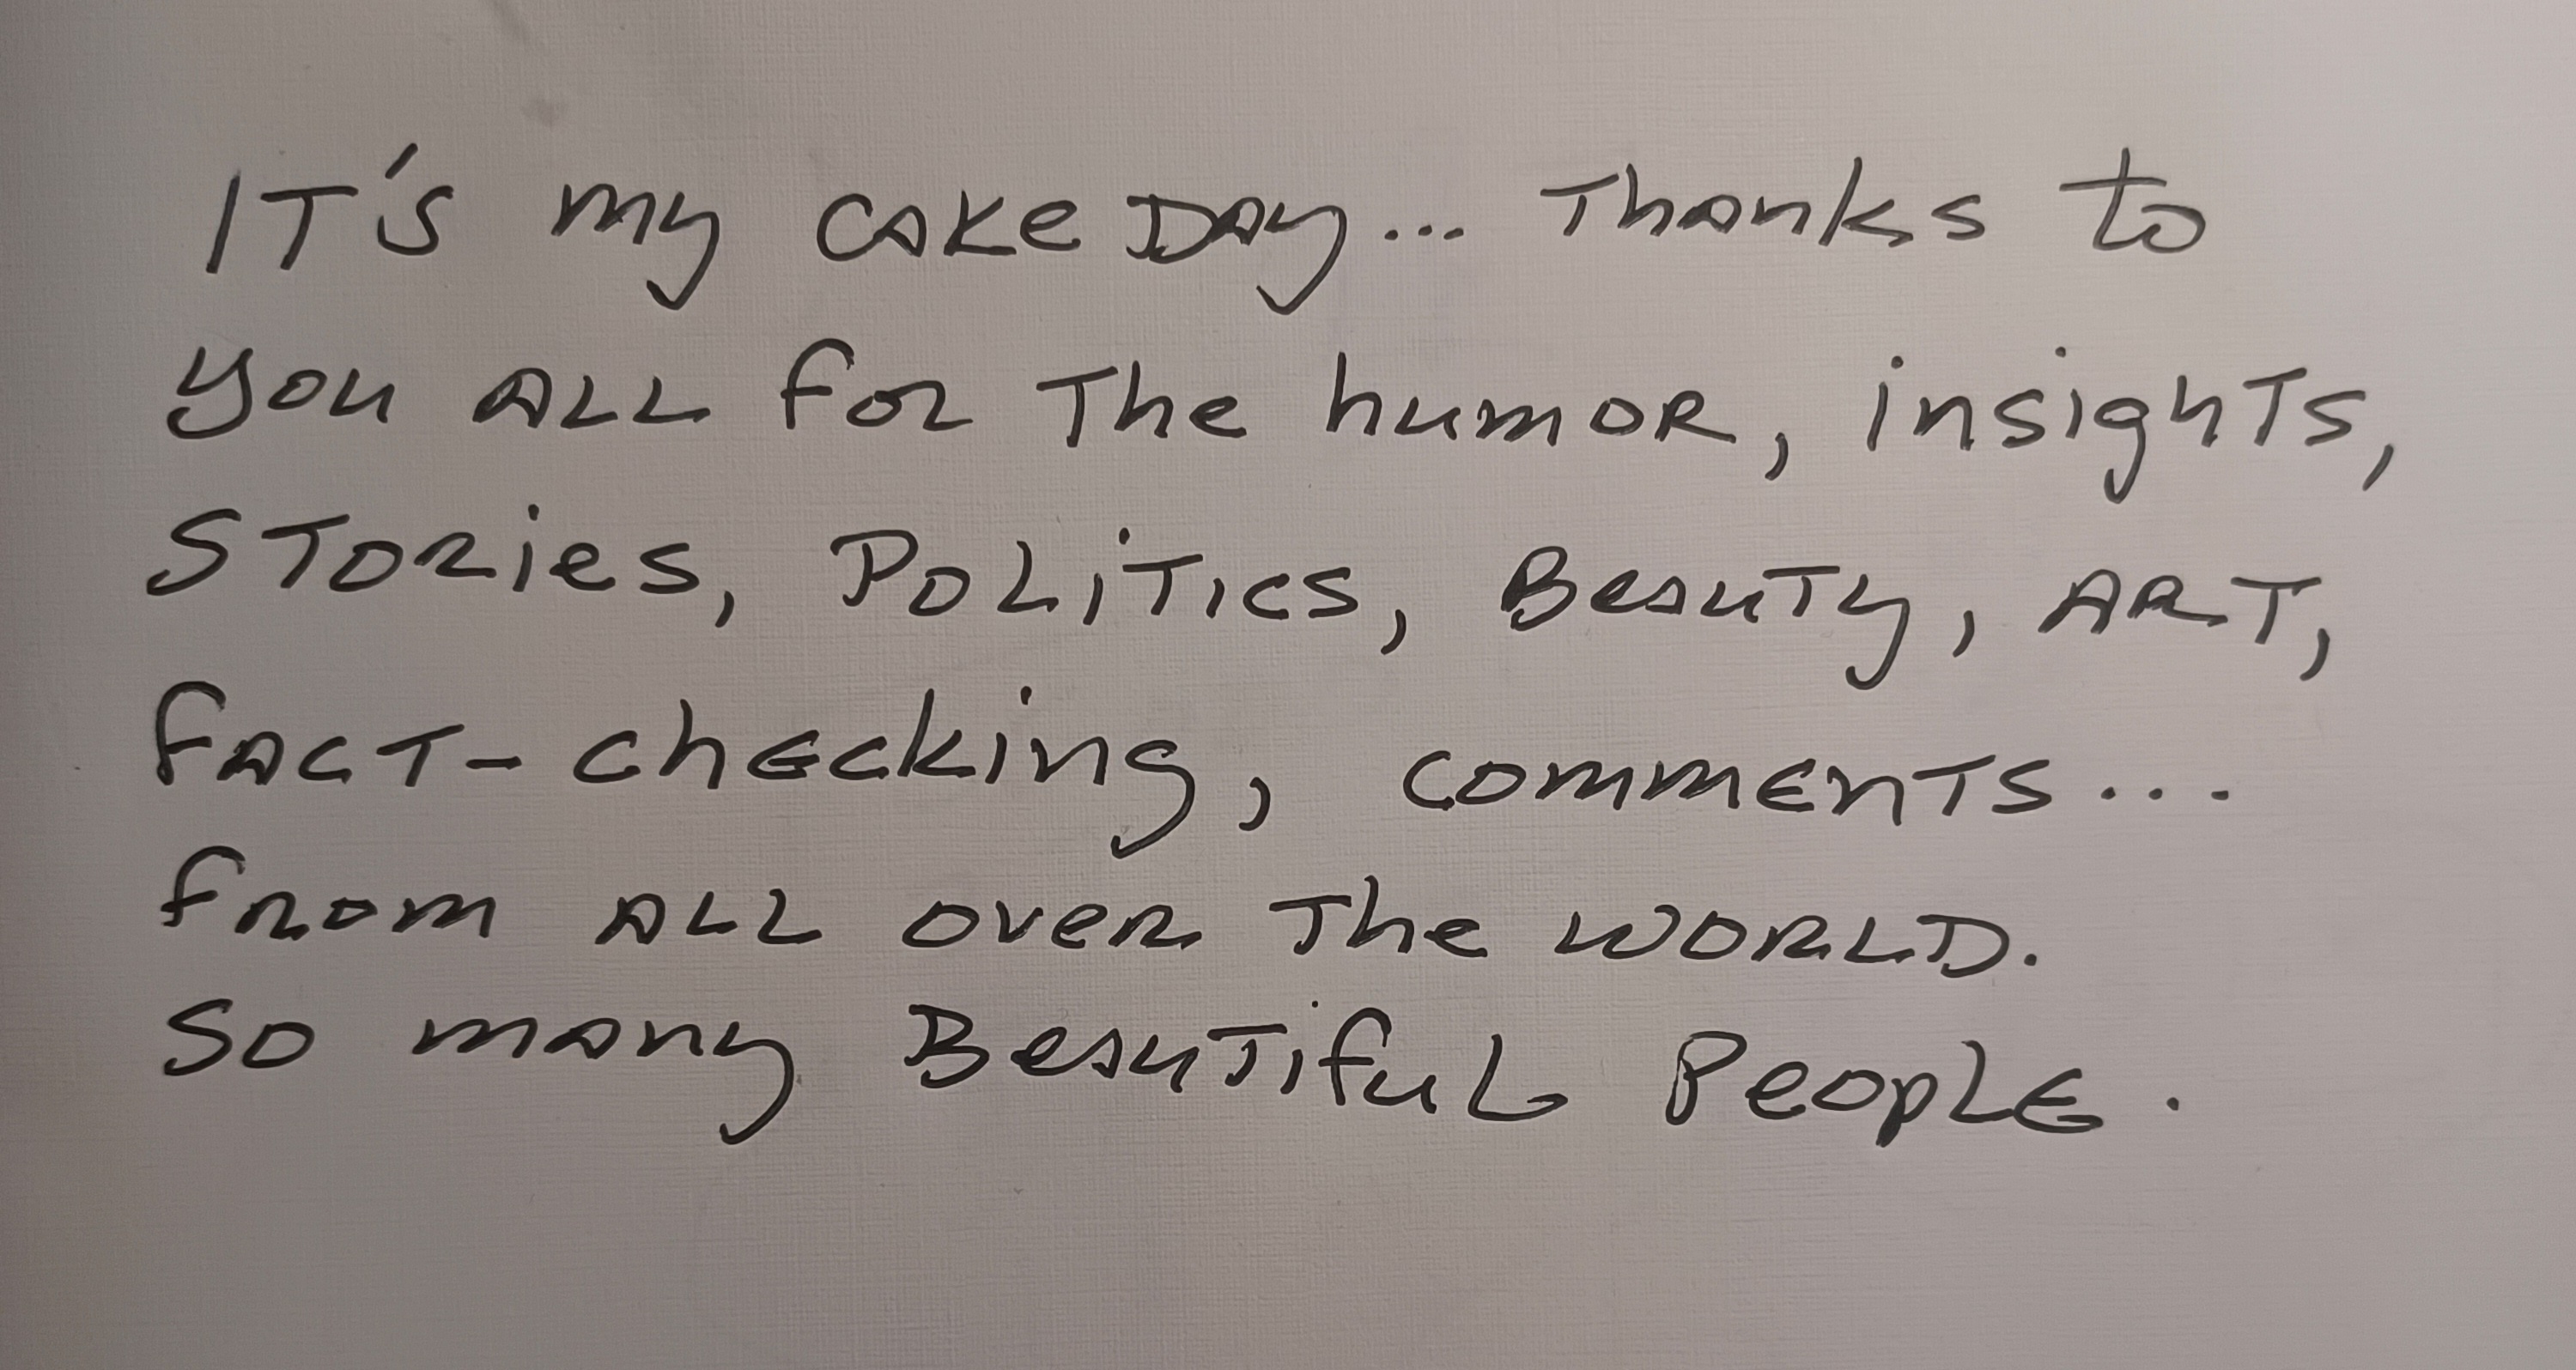 IT's my cake Day... Thanks to
you ALL for The humor, insights,
STORies, PoLiTics, BeauTy, ART,
fact-checking, comments...
from ALL over The WORLD.
So many BeauTifuL PeopLe.